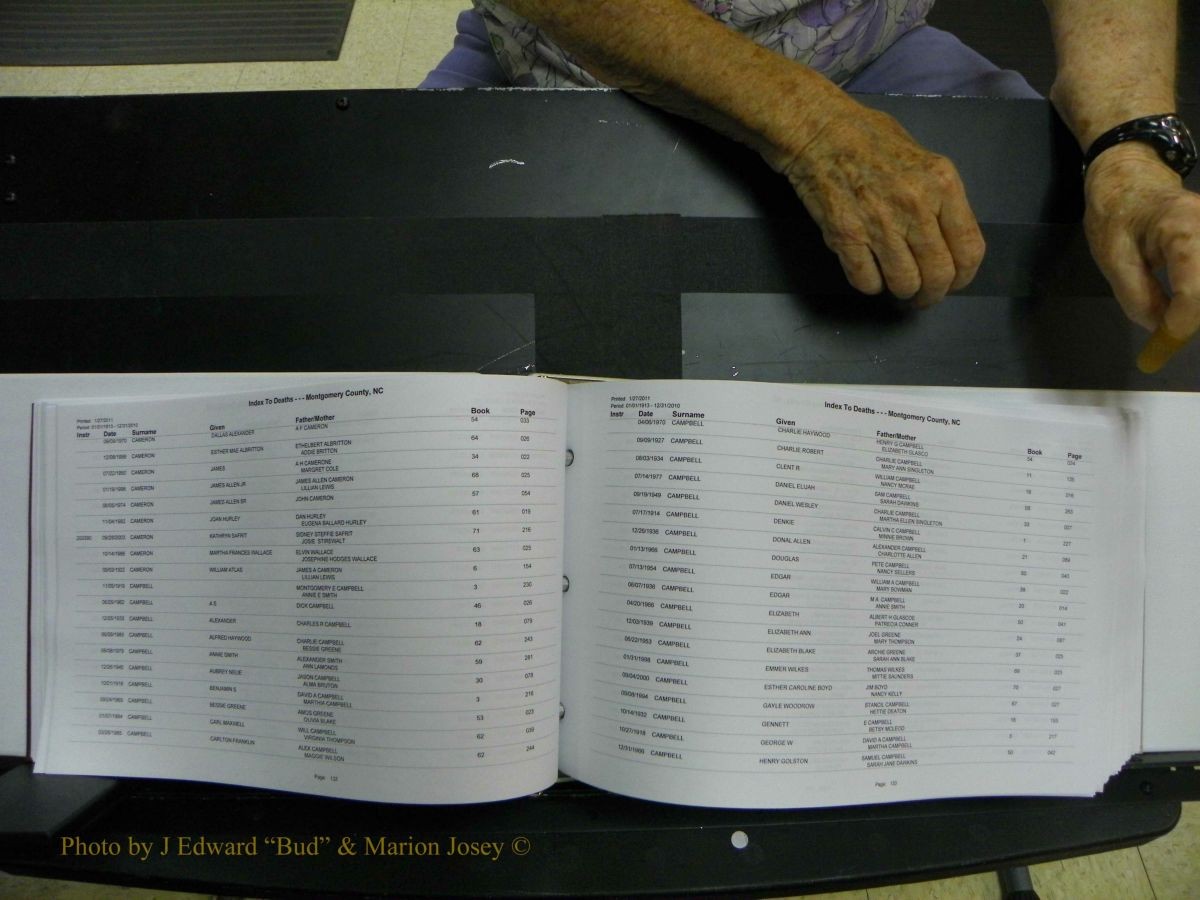 Index To Deaths - - - Montgomery County, NC
Printed 1/27/2011
Period 01/01/1913 - 12/31/2010
Instr Date Surname Given Father/Mother Book Page
CAMERON DALLAS ALEXANDER A F CAMERON 54 033
CAMERON ESTHER MAE ALBRITTON ETHELBERT ALBRITTON 64 026
ADDIE BRITTON
CAMERON JAMES A H CAMERONE 34 022
MARGRET COLE
CAMERON JAMES ALLEN JR JAMES ALLEN CAMERON 68 025
LILLIAN LEWIS
CAMERON JAMES ALLEN SR JOHN CAMERON 57 054
CAMERON JOAN HURLEY DAN HURLEY 61 019
EUGENA BALLARD HURLEY
CAMERON KATHRYN SAFRIT SIDNEY STEFFIE SAFRIT 71 216
JOSIE STIREWALT
CAMERON MARTHA FRANCES WALLACE ELVIN WALLACE 63 025
JOSEPHINE HODGES WALLACE
CAMERON WILLIAM ATLAS JAMES A CAMERON 6 154
LILLIAN LEWIS
CAMPBELL MONTGOMERY E CAMPBELL 3 230
ANNIE E SMITH
CAMPBELL A S DICK CAMPBELL 46 026
CAMPBELL ALEXANDER CHARLES R CAMPBELL 18 079
CAMPBELL ALFRED HAYWOOD CHARLIE CAMPBELL 62 243
BESSIE GREENE
CAMPBELL ANNIE SMITH ALEXANDER SMITH 59 281
ANN LAMONDS
CAMPBELL AUBREY NEILIE JASON CAMPBELL 30 078
ALMA BRUTON
CAMPBELL BENJAMIN S DAVID A CAMPBELL 3 216
MARTHIA CAMPBELL
CAMPBELL BESSIE GREENE AMOS GREENE 53 023
OLIVIA BLAKE
CAMPBELL CARL MAXWELL WILL CAMPBELL 62 039
VIRGINIA THOMPSON
CAMPBELL CARLTON FRANKLIN ALEX CAMPBELL 62 244
MAGGIE WILSON
Page 132
Index To Deaths - - - Montgomery County, NC
Printed 1/27/2011
Period 01/01/1913 - 12/31/2010
Instr Date Surname Given Father/Mother Book Page
04/06/1970 CAMPBELL CHARLIE HAYWOOD HENRY G CAMPBELL 54 034
ELIZABETH GLASCO
09/09/1927 CAMPBELL CHARLIE ROBERT CHARLIE CAMPBELL 11
MARY ANN SINGLETON
08/03/1934 CAMPBELL CLENT R WILLIAM CAMPBELL
NANCY MCRAE
07/14/1977 CAMPBELL DANIEL ELIJAH SAM CAMPBELL
SARAH DAWKINS
09/19/1949 CAMPBELL DANIEL WESLEY CHARLIE CAMPBELL 33 007
MARTHA ELLEN SINGLETON
07/17/1914 CAMPBELL DENKIE CALVIN C CAMPBELL 1 227
MINNIE BROWN
12/26/1936 CAMPBELL DONAL ALLEN ALEXANDER CAMPBELL 21 089
CHARLOTTE ALLEN
01/13/1966 CAMPBELL DOUGLAS PETE CAMPBELL 50 040
NANCY SELLERS
07/13/1954 CAMPBELL EDGAR WILLIAM A CAMPBELL 022
MARY BOWMAN
06/07/1936 CAMPBELL EDGAR M A CAMPBELL 20 014
ANNIE SMITH
04/20/1966 CAMPBELL ELIZABETH ALBERT H GLASCOE 50 041
PATRECIA CONNER
12/03/1939 CAMPBELL ELIZABETH ANN JOEL GREENE 24 087
MARY THOMPSON
06/22/1953 CAMPBELL ELIZABETH BLAKE ARCHIE GREENE 37 025
SARAH ANN BLAKE
01/31/1998 CAMPBELL EMMER WILKES THOMAS WILKES 69 023
MITTIE SAUNDERS
09/04/2000 CAMPBELL ESTHER CAROLINE BOYD JIM BOYD 70 027
NANCY KELLY
09/08/1994 CAMPBELL GAYLE WOODROW STANCIL CAMPBELL 67 027
HETTIE DEATON
10/14/1932 CAMPBELL GENNETT E CAMPBELL 16 193
BETSY MCLEOD
10/27/1918 CAMPBELL GEORGE W DAVID A CAMPBELL 3 217
MARTHA CAMPBELL
12/31/1966 CAMPBELL HENRY GOLSTON SAMUEL CAMPBELL 50 042
SARAH JANE DAWKINS
Page 133
Photo by J Edward “Bud” & Marion Josey ©